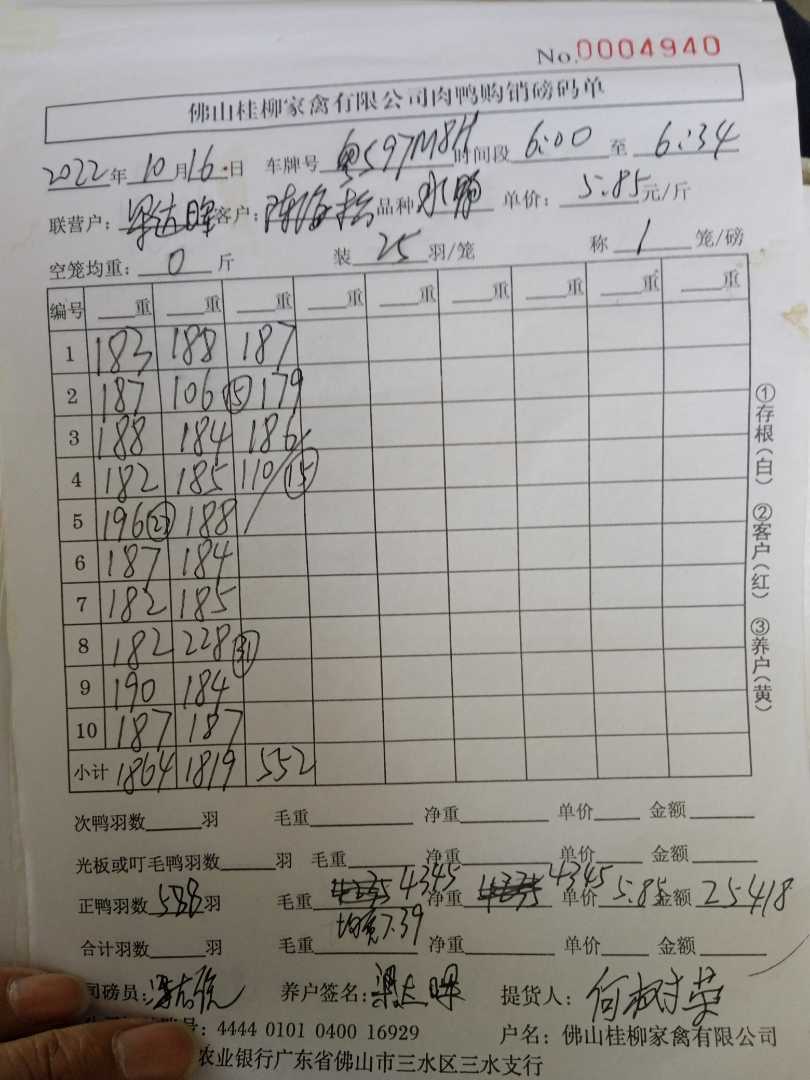 No.0004940
佛山桂柳家禽有限公司肉鸭购销磅码单
2022年10月16日 车牌号 粤S97M8H 时间段 6:00 至 6:34
联营户：梁达晖 客户：陈海松 品种 水鸭 单价：5.85元/斤
空笼均重：0斤 装 25 羽/笼 称 1 笼/磅
编号 重 重 重 重 重 重 重 重 重
1 183 188 187
2 187 106 ⑮ 179
3 188 184 186
4 182 185 110 ⑮
5 196 188
6 187 184
7 182 185
8 182 228 ㉛
9 190 184
10 187 187
小计 1864 1819 552
①存根（白） ②客户（红） ③养户（黄）
次鸭羽数 羽 毛重 净重 单价 金额
光板或叮毛鸭羽数 羽 毛重 净重 单价 金额
正鸭羽数 588 羽 毛重 4345 净重 4345 单价 5.85 金额 25418
均重7.39
合计羽数 羽 毛重 净重 单价 金额
司磅员： 养户签名：梁达晖 提货人：何树荣
号：4444 0101 0400 16929 户名：佛山桂柳家禽有限公司
农业银行广东省佛山市三水区三水支行